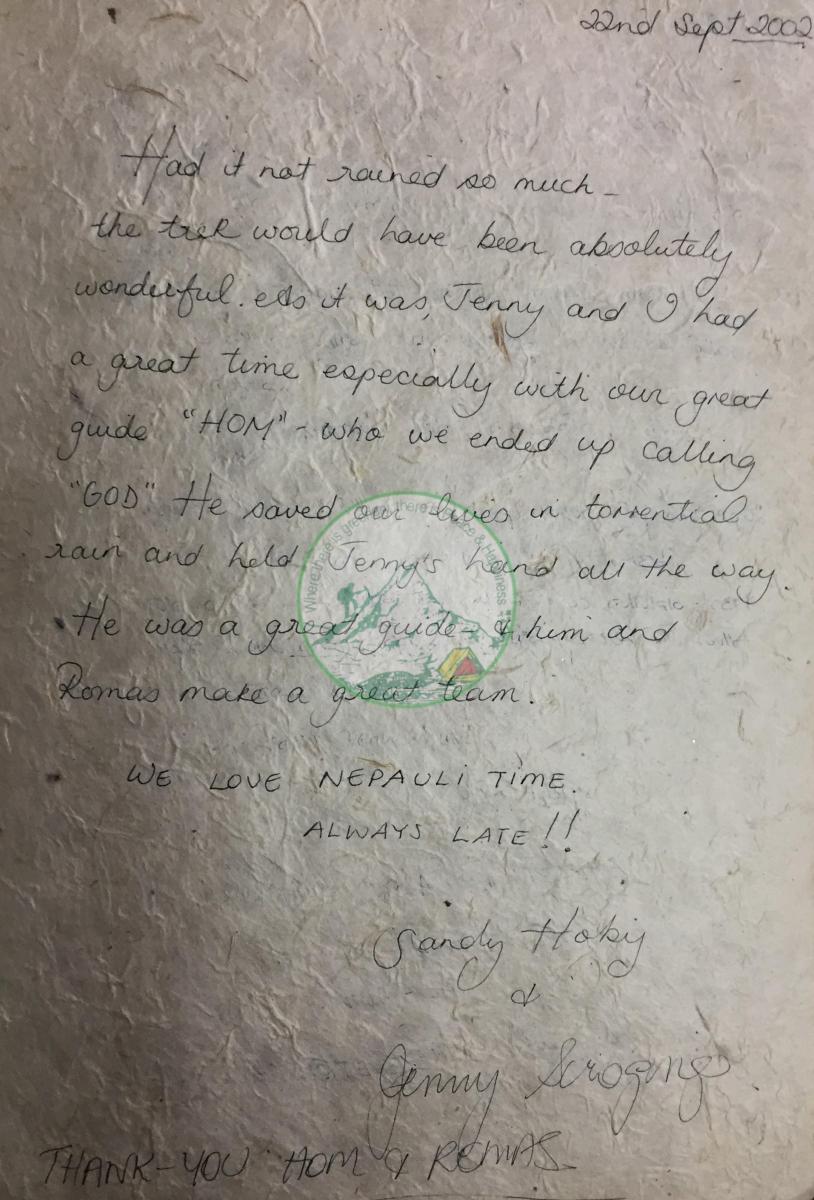 22nd Sept 2002
Had it not rained so much -
the trek would have been absolutely
wonderful. As it was, Jenny and I had
a great time especially with our great
guide "HOM" - who we ended up calling
"GOD" He saved our lives in torrential
rain and held Jenny's hand all the way.
He was a great guide - & him and
Romas make a great team.
WE LOVE NEPAULI TIME.
ALWAYS LATE!!
Sandy Hoby
&
Jenny
THANK-YOU HOM & ROMAS
Where there is green there is Peace & Happiness